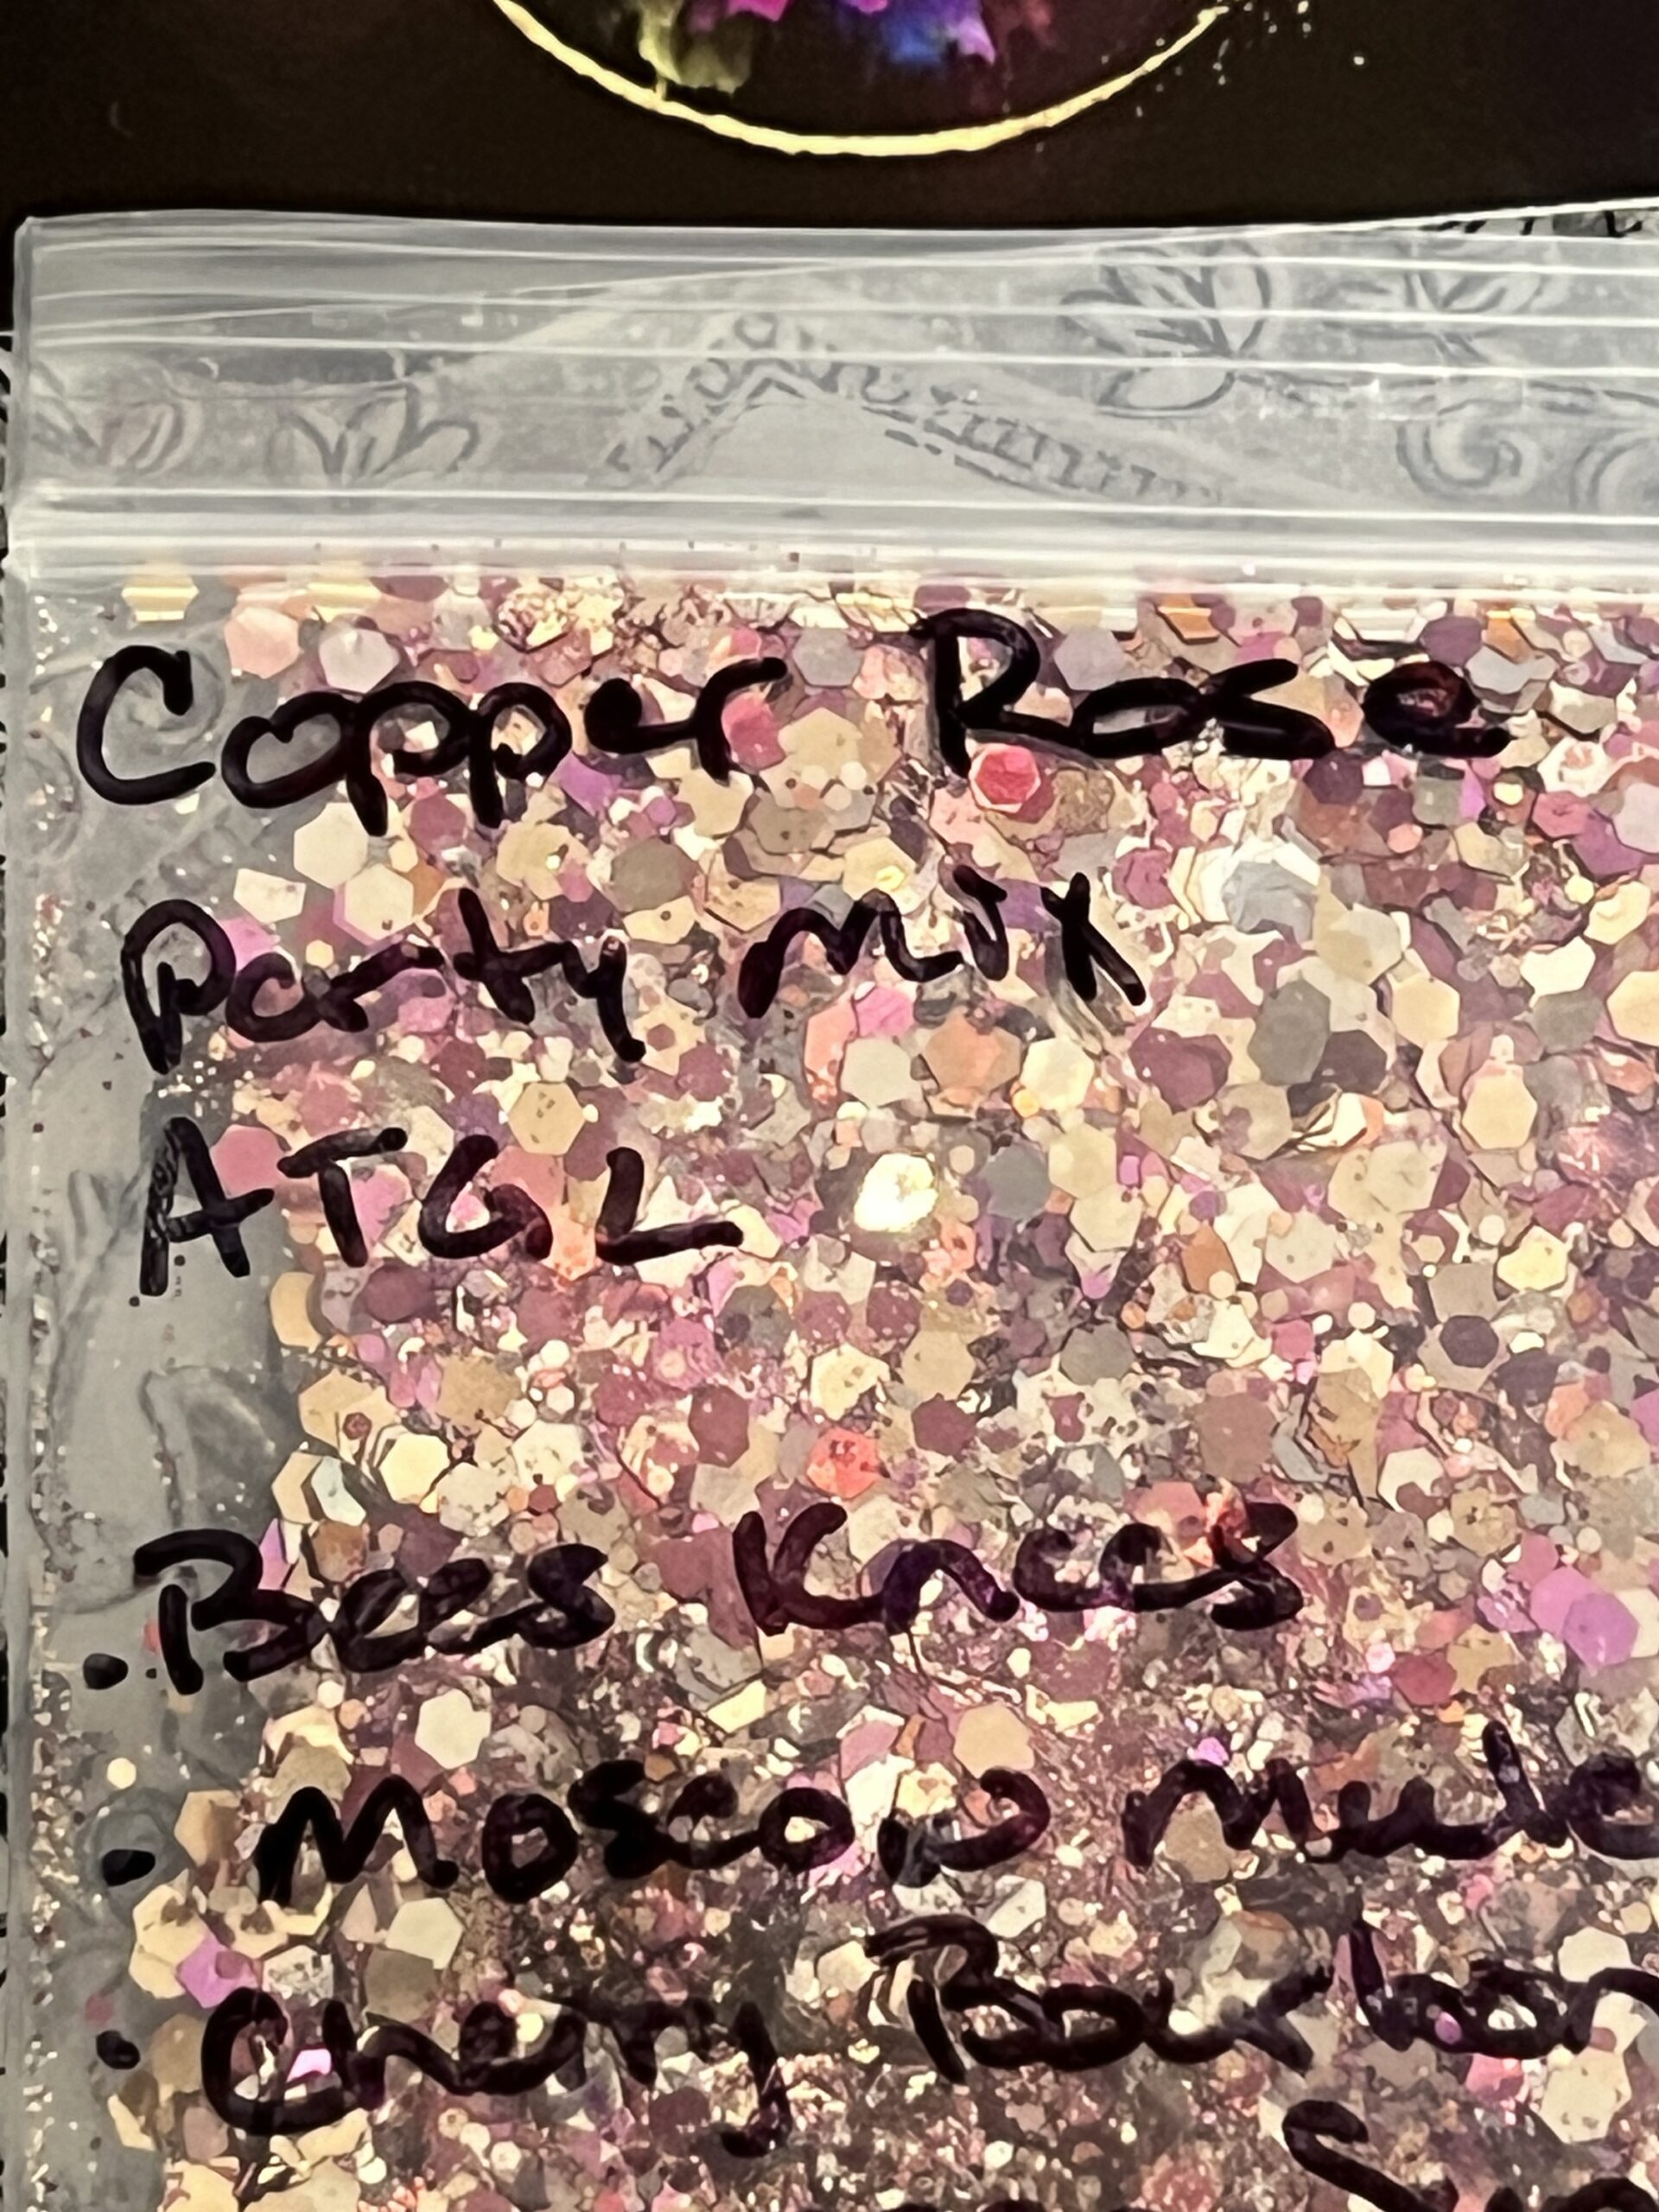 Copper Rose
Party mix
ATGL
. Bees Knees
. Moscow Mule
. Cherry Bourbon